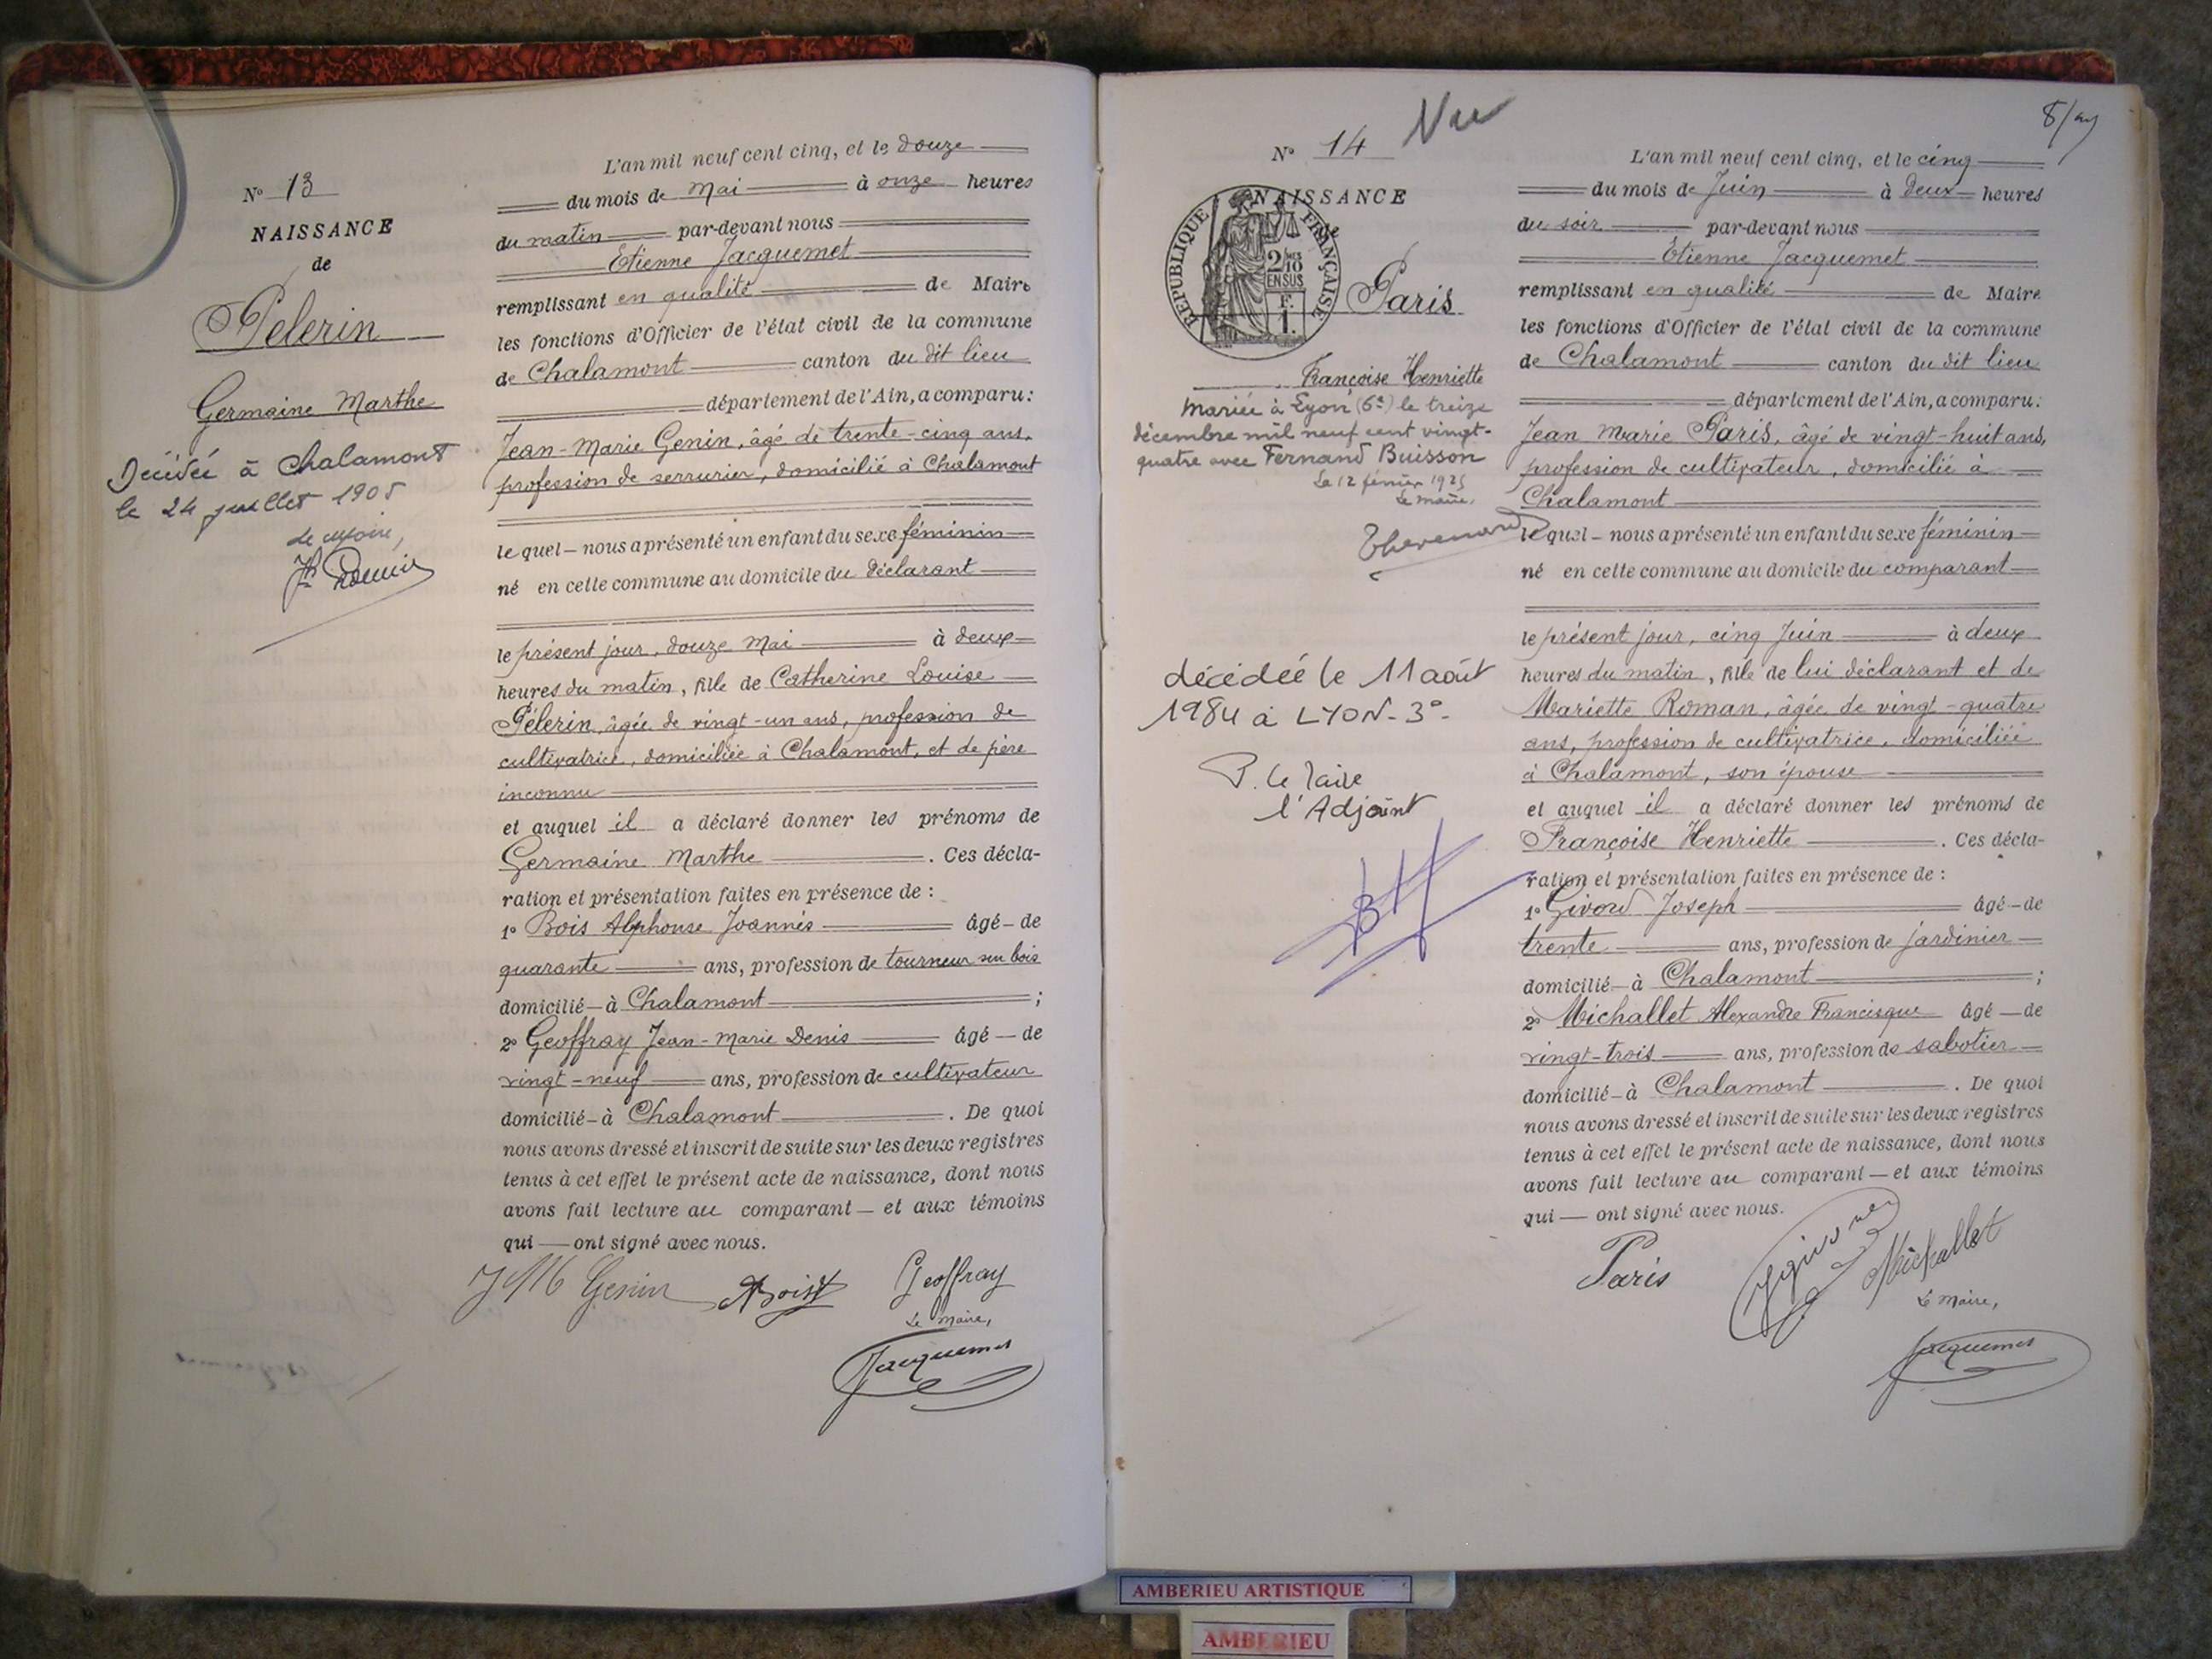 N° 13
NAISSANCE
de
Pelerin
Germaine Marthe
Décédée à Chalamont
le 24 juillet 1905
L'an mil neuf cent cinq, et le douze
du mois de Mai à onze heures
du matin par-devant nous
Etienne Jacquemet
remplissant en qualité de Maire
les fonctions d'Officier de l'état civil de la commune
de Chalamont canton du dit lieu
département de l'Ain, a comparu:
Jean-Marie Genin, âgé de trente-cinq ans,
profession de serrurier, domicilié à Chalamont
le quel nous a présenté un enfant du sexe féminin
né en cette commune au domicile du déclarant
le présent jour, douze Mai à deux
heures du matin, fille de Catherine Louise
Pélerin, âgée de vingt-un ans, profession de
cultivatrice, domiciliée à Chalamont, et de père
inconnu
et auquel il a déclaré donner les prénoms de
Germaine Marthe. Ces décla-
ration et présentation faites en présence de :
1° Bois Alphonse Joannès âgé de
quarante ans, profession de tourneur sur bois
domicilié à Chalamont ;
2° Geoffray Jean-Marie Denis âgé de
vingt-neuf ans, profession de cultivateur
domicilié à Chalamont. De quoi
nous avons dressé et inscrit de suite sur les deux registres
tenus à cet effet le présent acte de naissance, dont nous
avons fait lecture au comparant et aux témoins
qui ont signé avec nous.
JM Genin ABois Geoffray
Le Maire,
Jacquemet
N° 14 Vu
NAISSANCE
de
RÉPUBLIQUE FRANÇAISE
2/10
EN SUS
F.
1.
Paris
Françoise Henriette
Mariée à Lyon (6e) le treize
décembre mil neuf cent vingt-
quatre avec Fernand Buisson
Le 12 février 1925
Le maire,
Thevenard
décédée le 11 août
1984 à LYON-3°
P. le Maire
l'Adjoint
L'an mil neuf cent cinq, et le cinq
du mois de Juin à deux heures
du soir par-devant nous
Etienne Jacquemet
remplissant en qualité de Maire
les fonctions d'Officier de l'état civil de la commune
de Chalamont canton du dit lieu
département de l'Ain, a comparu:
Jean Marie Paris, âgé de vingt-huit ans,
profession de cultivateur, domicilié à
Chalamont
le quel nous a présenté un enfant du sexe féminin
né en cette commune au domicile du comparant
le présent jour, cinq Juin à deux
heures du matin, fille de lui déclarant et de
Mariette Roman, âgée de vingt-quatre
ans, profession de cultivatrice, domiciliée
à Chalamont, son épouse
et auquel il a déclaré donner les prénoms de
Françoise Henriette. Ces décla-
ration et présentation faites en présence de :
1° Joseph âgé de
trente ans, profession de jardinier
domicilié à Chalamont ;
2° Michallet Alexandre Francisque âgé de
vingt-trois ans, profession de sabotier
domicilié à Chalamont. De quoi
nous avons dressé et inscrit de suite sur les deux registres
tenus à cet effet le présent acte de naissance, dont nous
avons fait lecture au comparant et aux témoins
qui ont signé avec nous.
Paris Michallet
Le Maire,
Jacquemet
AMBERIEU ARTISTIQUE
AMBERIEU